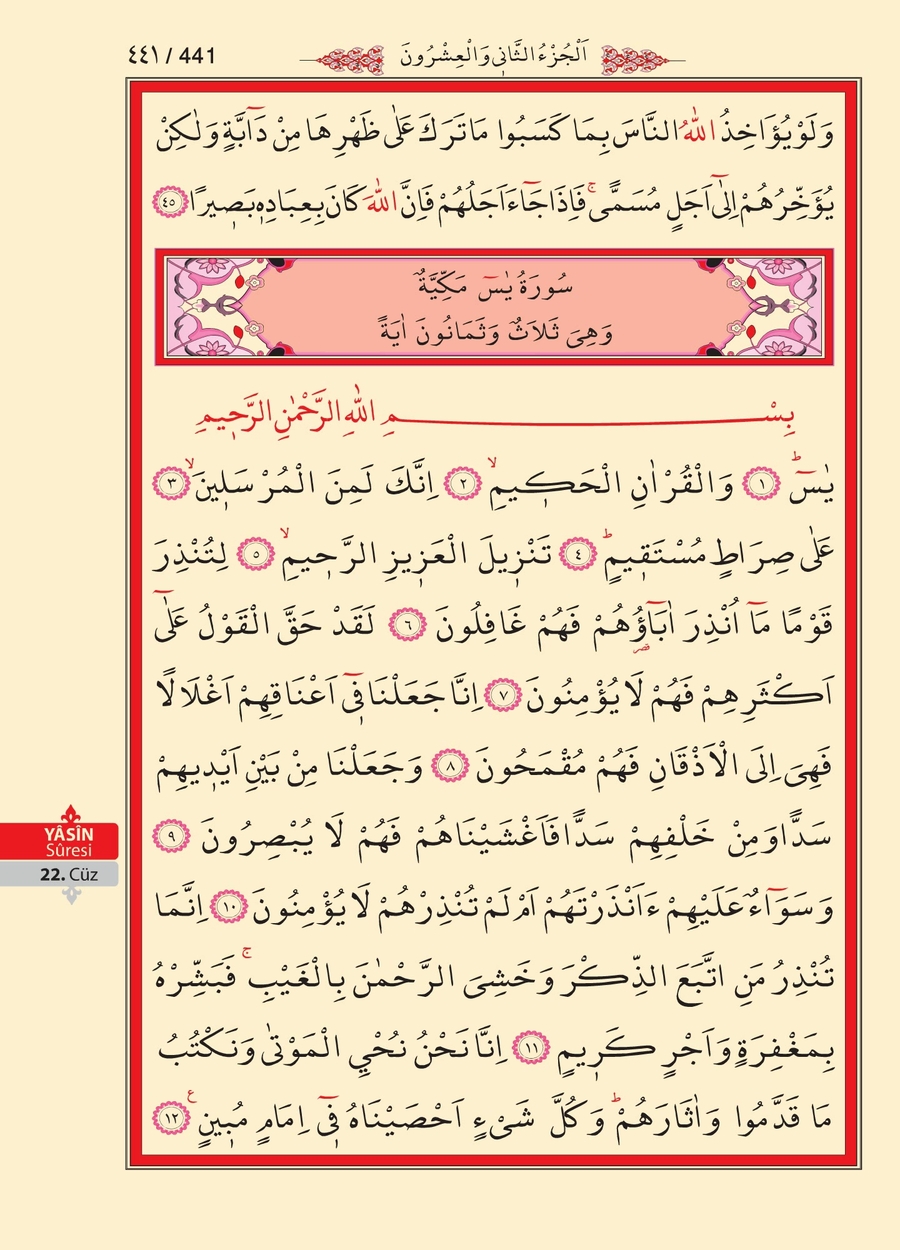 ٤٤١ / 441
اَلْجُزْءُ الثَّانٖي وَالْعِشْرُونَ
وَلَوْ يُؤَاخِذُ اللّٰهُ النَّاسَ بِمَا كَسَبُوا مَا تَرَكَ عَلٰى ظَهْرِهَا مِنْ دَٓابَّةٍ وَلٰكِنْ
يُؤَخِّرُهُمْ اِلٰٓى اَجَلٍ مُسَمًّىۚ فَاِذَا جَٓاءَ اَجَلُهُمْ فَاِنَّ اللّٰهَ كَانَ بِعِبَادِهٖ بَصٖيرًا ﴿٤٥﴾
سُورَةُ يٰسٓ مَكِّيَّةٌ
وَهِيَ ثَلَاثٌ وَثَمَانُونَ اٰيَةً
بِسْمِ اللّٰهِ الرَّحْمٰنِ الرَّحٖيمِ
يٰسٓۜ ﴿١﴾ وَالْقُرْاٰنِ الْحَكٖيمِۙ ﴿٢﴾ اِنَّكَ لَمِنَ الْمُرْسَلٖينَۙ ﴿٣﴾
عَلٰى صِرَاطٍ مُسْتَقٖيمٍۜ ﴿٤﴾ تَنْزٖيلَ الْعَزٖيزِ الرَّحٖيمِۙ ﴿٥﴾ لِتُنْذِرَ
قَوْمًا مَٓا اُنْذِرَ اٰبَٓاؤُ۬هُمْ فَهُمْ غَافِلُونَ ﴿٦﴾ لَقَدْ حَقَّ الْقَوْلُ عَلٰٓى
اَكْثَرِهِمْ فَهُمْ لَا يُؤْمِنُونَ ﴿٧﴾ اِنَّا جَعَلْنَا فٖٓي اَعْنَاقِهِمْ اَغْلَالًا
فَهِيَ اِلَى الْاَذْقَانِ فَهُمْ مُقْمَحُونَ ﴿٨﴾ وَجَعَلْنَا مِنْ بَيْنِ اَيْدٖيهِمْ
سَدًّا وَمِنْ خَلْفِهِمْ سَدًّا فَاَغْشَيْنَاهُمْ فَهُمْ لَا يُبْصِرُونَ ﴿٩﴾
وَسَوَٓاءٌ عَلَيْهِمْ ءَاَنْذَرْتَهُمْ اَمْ لَمْ تُنْذِرْهُمْ لَا يُؤْمِنُونَ ﴿١٠﴾ اِنَّمَا
تُنْذِرُ مَنِ اتَّبَعَ الذِّكْرَ وَخَشِيَ الرَّحْمٰنَ بِالْغَيْبِۚ فَبَشِّرْهُ
بِمَغْفِرَةٍ وَاَجْرٍ كَرٖيمٍ ﴿١١﴾ اِنَّا نَحْنُ نُحْيِ الْمَوْتٰى وَنَكْتُبُ
مَا قَدَّمُوا وَاٰثَارَهُمْۜ وَكُلَّ شَيْءٍ اَحْصَيْنَاهُ فٖٓي اِمَامٍ مُبٖينٍ ࣖ ﴿١٢﴾
YÂSÎN
Sûresi
22. Cüz